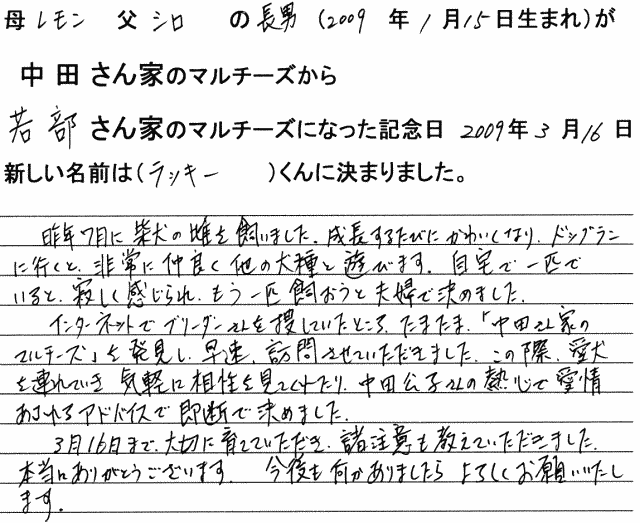 母 レモン 父 シロ の 長男 (2009 年 1 月 15 日生まれ)が
中田さん家のマルチーズから
若部 さん家のマルチーズになった記念日 2009年 3 月 16 日
新しい名前は(ラッキー )くんに決まりました。
昨年7月に柴犬の雄を飼いました。成長するたびにかわいくなり、ドッグラン
に行くと、非常に仲良く他の犬種と遊びます。自宅で一匹で
いると、寂しく感じられ、もう一匹飼おうと夫婦で決めました。
インターネットでブリーダーさんを捜していたところ、たまたま、「中田さん家の
マルチーズ」を発見し、早速、訪問させていただきました。この際、愛犬
を連れていき、気軽に相性を見てくれたり、中田公子さんの熱心で愛情
あふれるアドバイスで即断で決めました。
3月16日まで、大切に育てていただき、諸注意も教えていただきました。
本当にありがとうございます。 今後も何かありましたら よろしくお願いいたし
ます。